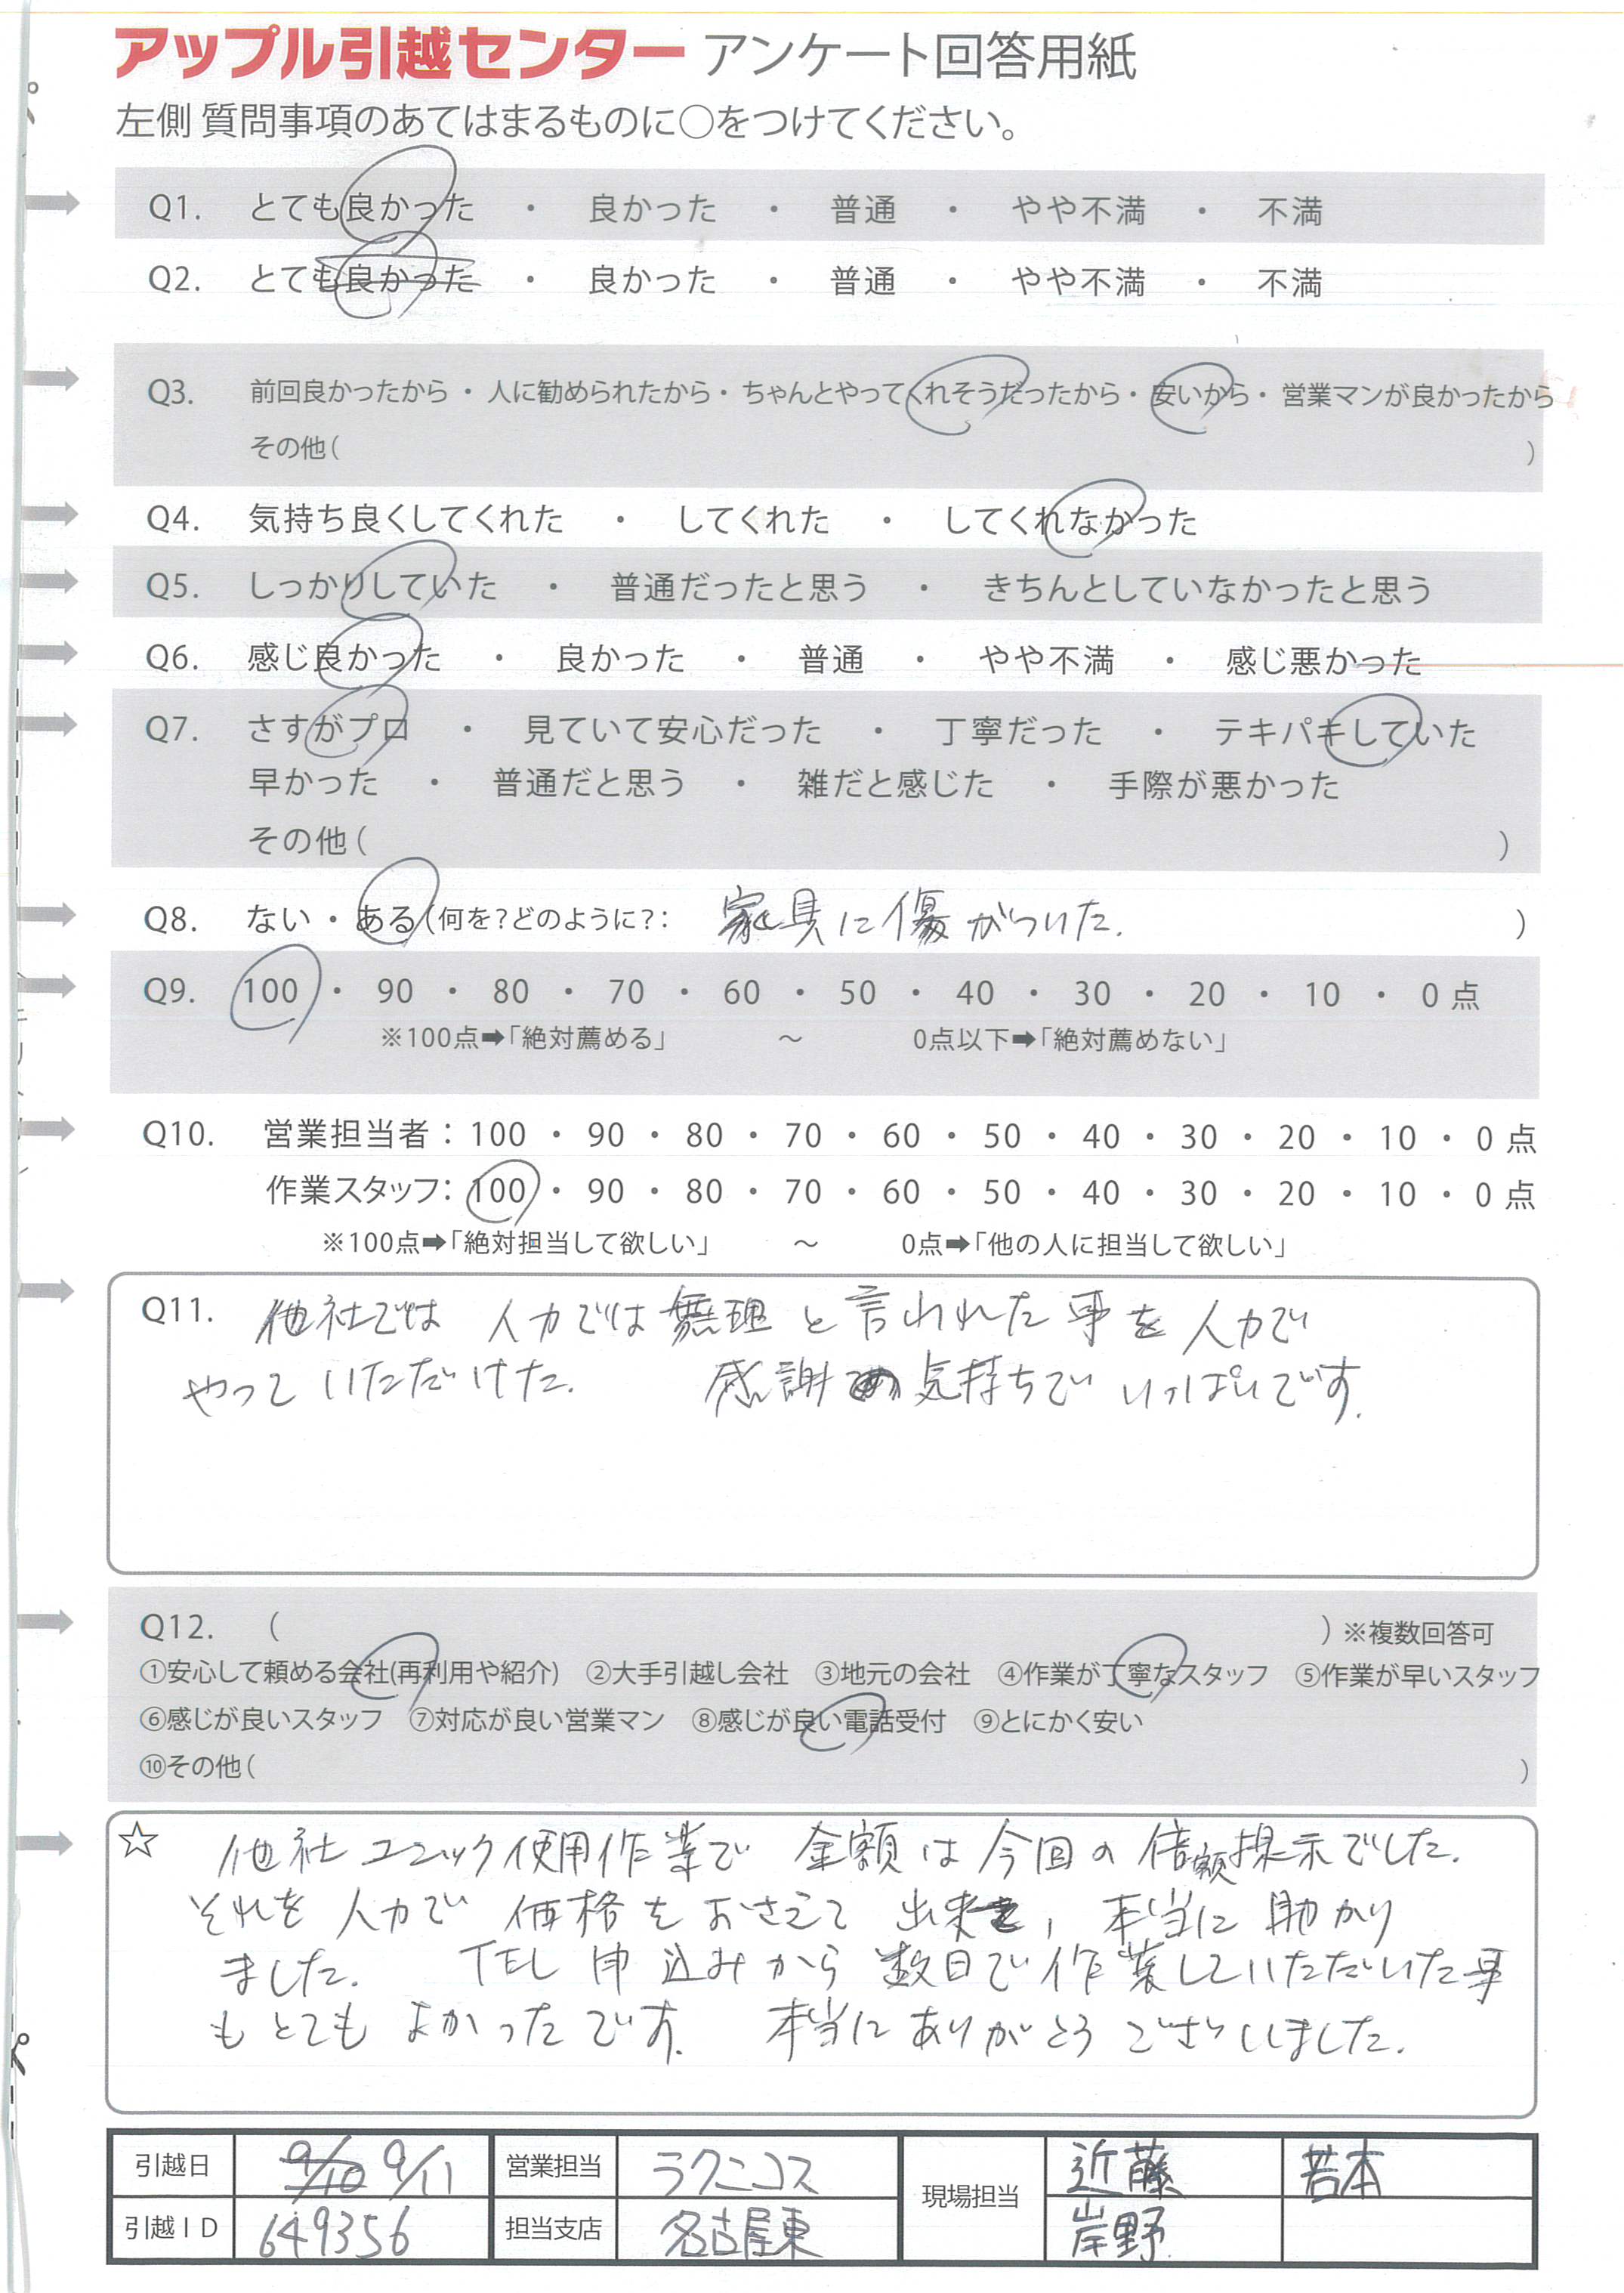 アップル引越センター アンケート回答用紙
左側 質問事項のあてはまるものに○をつけてください。
Q1. とても良かった ・ 良かった ・ 普通 ・ やや不満 ・ 不満
Q2. とても良かった ・ 良かった ・ 普通 ・ やや不満 ・ 不満
Q3. 前回良かったから・ 人に勧められたから・ ちゃんとやってくれそうだったから・ 安いから・ 営業マンが良かったから
その他( )
Q4. 気持ち良くしてくれた ・ してくれた ・ してくれなかった
Q5. しっかりしていた ・ 普通だったと思う ・ きちんとしていなかったと思う
Q6. 感じ良かった ・ 良かった ・ 普通 ・ やや不満 ・ 感じ悪かった
Q7. さすがプロ ・ 見ていて安心だった ・ 丁寧だった ・ テキパキしていた
早かった ・ 普通だと思う ・ 雑だと感じた ・ 手際が悪かった
その他( )
Q8. ない・ある(何を?どのように?: 家具に傷がついた. )
Q9. 100 ・ 90 ・ 80 ・ 70 ・ 60 ・ 50 ・ 40 ・ 30 ・ 20 ・ 10 ・ 0点
※100点➡「絶対薦める」 ～ 0点以下➡「絶対薦めない」
Q10. 営業担当者：100 ・ 90 ・ 80 ・ 70 ・ 60 ・ 50 ・ 40 ・ 30 ・ 20 ・ 10 ・ 0点
作業スタッフ：100 ・ 90 ・ 80 ・ 70 ・ 60 ・ 50 ・ 40 ・ 30 ・ 20 ・ 10 ・ 0点
※100点➡「絶対担当して欲しい」 ～ 0点➡「他の人に担当して欲しい」
Q11. 他社では 人力では無理と言われた事を人力で
やっていただけた. 感謝の気持ちでいっぱいです.
Q12. ( ) ※複数回答可
①安心して頼める会社(再利用や紹介) ②大手引越し会社 ③地元の会社 ④作業が丁寧なスタッフ ⑤作業が早いスタッフ
⑥感じが良いスタッフ ⑦対応が良い営業マン ⑧感じが良い電話受付 ⑨とにかく安い
⑩その他( )
☆ 他社ユニック使用作業で 金額は今回の倍額提示でした.
それを人力で 価格をおさえて 出来, 本当に助かり
ました. TEL申込みから数日で作業していただいた事
もとてもよかったです. 本当にありがとうございました.
引越日 9/10 9/11 営業担当 ラクニコス 現場担当 近藤 若本
引越ID 649356 担当支店 名古屋東 岸野